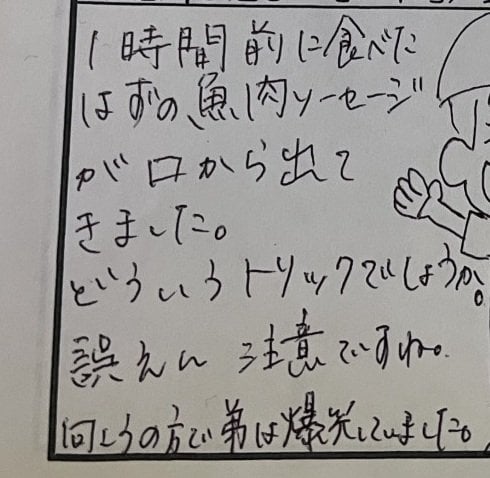 1時間前に食べた
はずの、魚肉ソーセージ
が口から出て
きました。
どういうトリックでしょうか。
誤えん注意ですね。
向こうの方で弟は爆発していました。